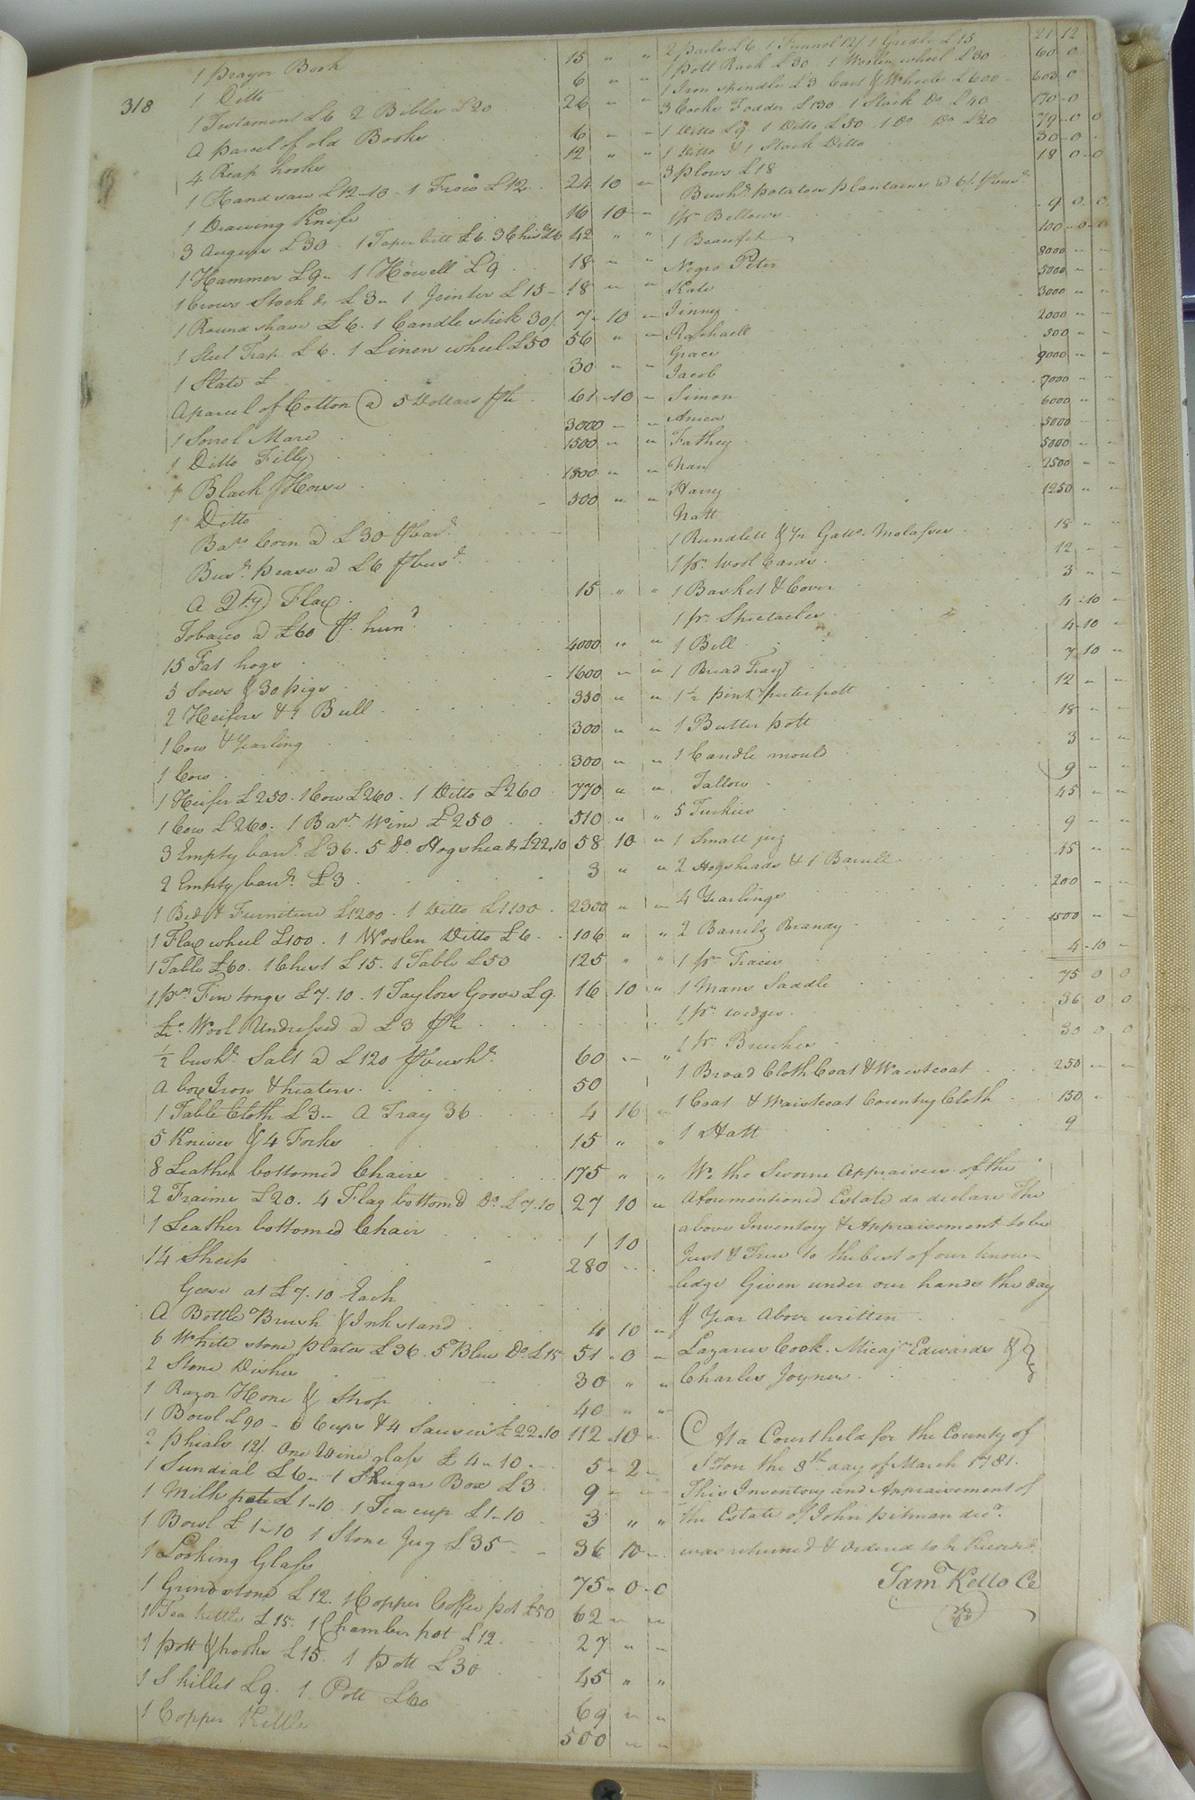 318
1 prayor Book 15 " "
1 Ditto 6 " "
1 Testament £6 2 Bibles £20 26 " "
A parcel of old Books 6 " "
4 Reap hooks 12 " "
1 Hand saw £12-10 - 1 Froio £12 24 10 "
1 Drawing Knife 16 10 "
3 Augers £30 - 1 Taper bitt £6. 3 Chisls £6 42 " "
1 Hammer £9 - 1 Howell £9 18 " "
1 Crows Stock &c £3 " 1 Jointer £15 - 18 " "
1 Round shave £6. 1 Candle stick 30/ 7 - 10 "
1 Steel Trap £6. 1 Linen wheel £50 56 " "
1 Slate £ 30 " "
A parcel of Cotton @ 5 Dollars pr lb 61 10 "
1 Sorrel Mare 3000 " "
1 Ditto Filly 1500 " "
1 Black Horse 1800 " "
1 Ditto 300 " "
Bars Corn @ £30 pr bar.
Bus. pease @ £6 pr bus.
A Qty Flax 15 " "
Tobacco @ £60 pr hund
15 Fat hogs 4000 " "
3 Sows & 30 pigs 1600 " "
2 Heifers & 1 Bull 330 " "
1 Cow & Yearling 300 " "
1 Cow 300 " "
1 Heifer £250. 1 Cow £260. 1 Ditto £260 770 " "
1 Cow £260. 1 Bar. Wine £250 510 " "
3 Empty bars £36. 5 Do Hogsheads £22,10 58 10 "
2 Empty bars £3 3 " "
1 Bed & Furniture £1200. 1 Ditto £1100. 2300 " "
1 Flax wheel £100. 1 Woolen Ditto £6. 106 " "
1 Table £60. 1 Chest £15. 1 Table £50 125 " "
1 pr Fire tongs £7.10. 1 Taylors Goose £9. 16 10 "
Wool Undressed @ £3 pr lb
½ bush. Salt @ £120 pr bush. 60 " "
A box Iron & heaters 50
1 Table Cloth £3 " A Tray 36 4 16 "
5 Knives & 4 Forks 15 " "
8 Leather bottomed Chairs 175 " "
2 Fraims £20. 4 Flag bottomd Do £7.10 27 10 "
1 Leather bottomed Chair 1 10
14 Sheep 280
Geese at £7.10 Each
A Bottle Brush & Inkstand 4 10 "
6 White stone plates £36. 5 Blue Do £15 51 - 0 -
2 Stone Dishes 30 " "
1 Razor Hone & Strop 40 " "
1 Bowl £90 - 6 Cups & 4 Saucers £22.10 112 10 "
2 phials 12/ One Wine glass £4 - 10 5 - 2 -
1 Sundial £6 - 1 Shugar Box £3 9 " "
1 Milk pott £1-10. 1 Tea cup £1-10 3 " "
1 Bowl £1-10 1 Stone Jug £35 - 36 10 -
1 Looking Glass 75 - 0 - 0
1 Grindstone £12. 1 Copper Coffee pot £50 62 " "
1 Tea kettle £15. 1 Chamber pot £12 27 " "
1 pott & hooks £15. 1 Pott £30 45 " "
1 Skillet £9. 1 Pott £60 69 " "
1 Copper Kettle 500 " "
2 pails £6. 1 Funnel 12/ 1 Gridle £15 21 12
1 pott Rack £30 1 Woolen wheel £30 60 0
1 Iron spindle £3 Cart & Wheels £600 603 0
3 Cocks Fodder £130. 1 Stack Do £40 170 - 0
1 Ditto £9. 1 Ditto £50. 1 Do Do £20 79 - 0 0
1 Ditto & 1 Stack Ditto 30 - 0
3 plows £18 18 0 - 0
Bush. Potatoes plantains @ 6/
1 pr Bellows 9 0 0
1 Beaufet 100 - 0 - 0
Negro Peter 8000 " "
Kate 5000 " "
Jenney 3000 " "
Raphaell 2000 " "
Grace 500 " "
Jacob 9000 " "
Simon 7000 " "
Amica 6000 " "
Fathey 5000 " "
Nan 5000 " "
Harry 2500 " "
Natt 1250 " "
1 Rundlett & Gals. Molasses 18 " "
1 pr. Wool Cards 12 " "
1 Basket & Cover 3 " "
1 pr. Spectacles 4 - 10 "
1 Bell 4 - 10 "
1 Bread Tray 7 10 "
1 ½ pint puter pott 12 " "
1 Butter pott 18 " "
1 Candle mould 3 " "
Tallow 9 " "
5 Turkies 45 " "
1 Small jug 9 " "
2 Hogsheads & 1 Barrell 15 " "
4 Yearlings 200 " "
2 Barrils Brandy 1500 " "
1 pr. Traces 4 - 10 "
1 Mans Saddle 75 0 0
1 pr. wedges 36 0 0
1 pr. Breeches 30 0 0
1 Broad Cloth Coat & Waistcoat 250 " "
1 Coat & Waistcoat Country Cloth 150 "
1 Hatt 9
We the Sworne Appraisers of the
Aforementioned Estate do declare the
above Inventory & Appraisement to be
Just & True to the best of our know-
ledge Given under our hands the day
& Year Above written
Lazarus Cook. Micajr Edwards &
Charles Joyner.
At a Court held for the County of
the 8th day of March 1781.
This Inventory and Appraisement of
the Estate of John pitman decd.
was returned & ordered to be Recorded
Saml Kello Cc